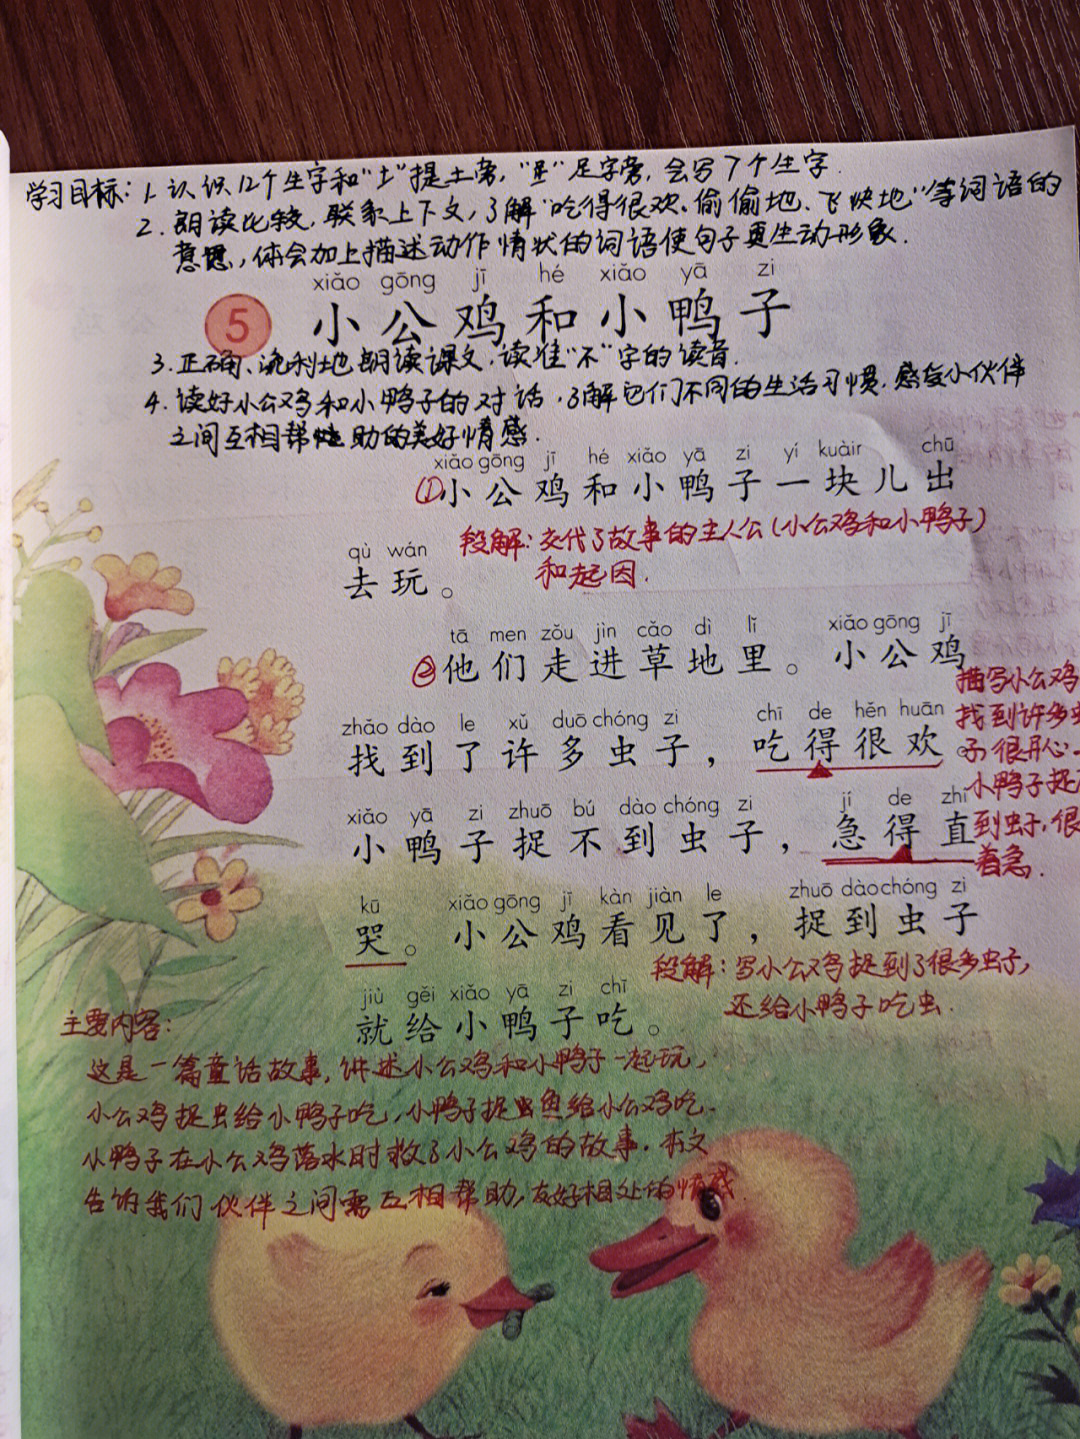 学习目标：1. 认识12个生字和"土"提土旁，"𧾷"足字旁，会写7个生字.
2. 朗读比较，联系上下文，了解"吃得很欢、偷偷地、飞快地"等词语的
意思，体会加上描述动作情状的词语使句子更生动形象.
xiǎo gōng jī hé xiǎo yā zi
5 小公鸡和小鸭子
3. 正确、流利地朗读课文，读准"不"字的读音.
4. 读好小公鸡和小鸭子的对话，了解它们不同的生活习惯，感受小伙伴
之间互相帮助的美好情感.
xiǎo gōng jī hé xiǎo yā zi yí kuàir chū
①小公鸡和小鸭子一块儿出
段解：交代了故事的主人公(小公鸡和小鸭子)
和起因.
qù wán
去玩。
tā men zǒu jìn cǎo dì lǐ xiǎo gōng jī
②他们走进草地里。小公鸡
描写小公鸡
找到许多虫
子很开心
小鸭子捉不
到虫子，很
着急.
zhǎo dào le xǔ duō chóng zi chī de hěn huān
找到了许多虫子，吃得很欢。
xiǎo yā zi zhuō bú dào chóng zi jí de zhí
小鸭子捉不到虫子，急得直
kū xiǎo gōng jī kàn jiàn le zhuō dào chóng zi
哭。小公鸡看见了，捉到虫子
段解：写小公鸡捉到了很多虫子，
还给小鸭子吃虫.
jiù gěi xiǎo yā zi chī
就给小鸭子吃。
主要内容：
这是一篇童话故事，讲述小公鸡和小鸭子一起玩，
小公鸡捉虫给小鸭子吃，小鸭子捉鱼给小公鸡吃.
小鸭子在小公鸡落水时救了小公鸡的故事. 本文
告诉我们伙伴之间需互相帮助，友好相处的情感.